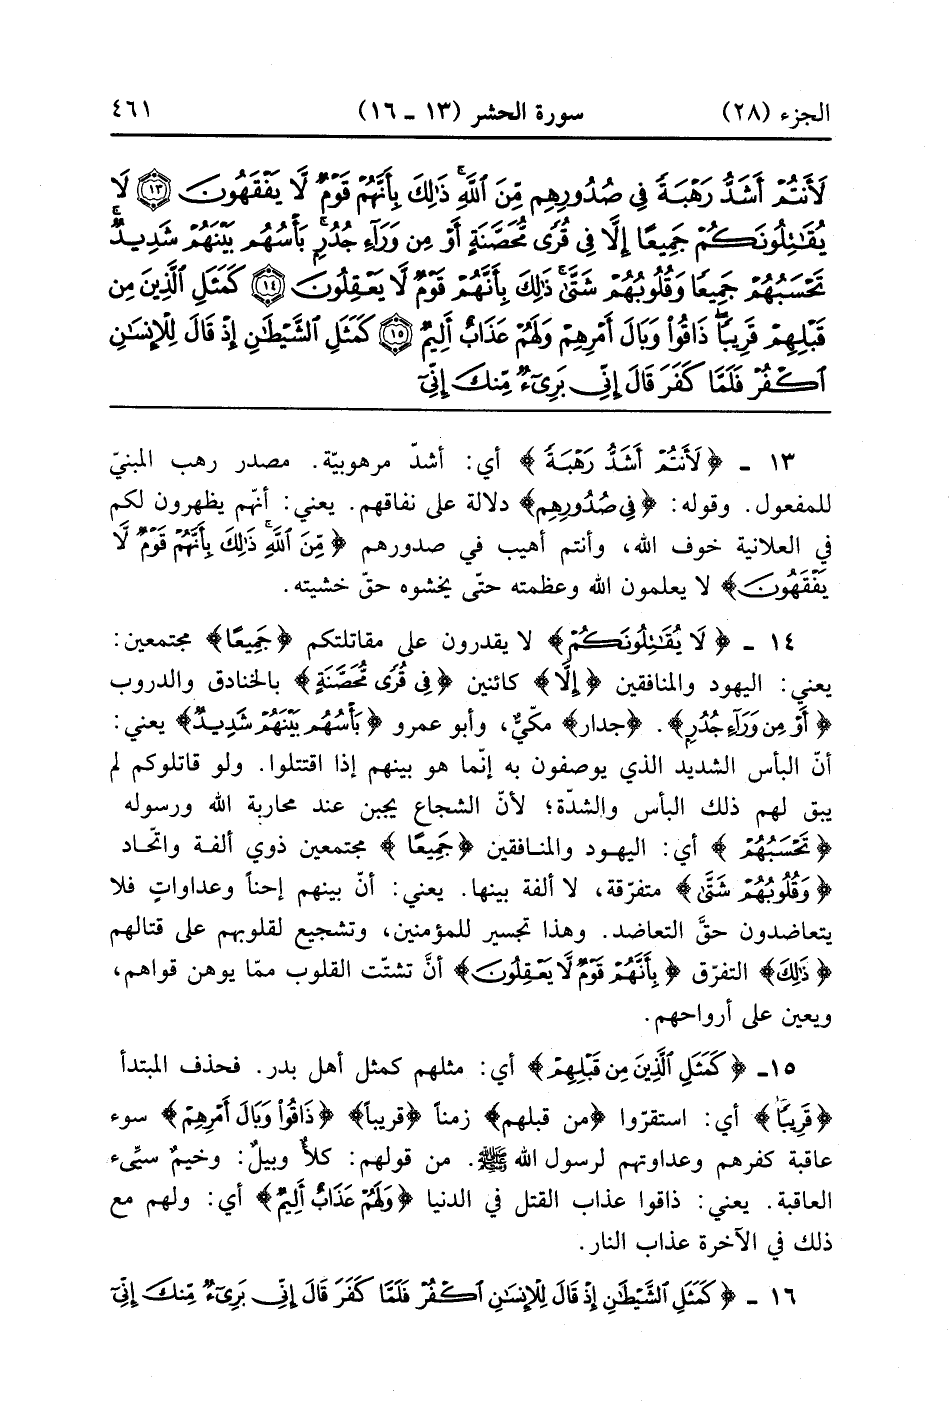 الجزء (٢٨) سورة الحشر (١٣ ـ ١٦) ٤٦١
لَأَنتُمْ أَشَدُّ رَهْبَةً فِي صُدُورِهِم مِّنَ اللَّهِ ۚ ذَٰلِكَ بِأَنَّهُمْ قَوْمٌ لَّا يَفْقَهُونَ ﴿١٣﴾ لَا
يُقَاتِلُونَكُمْ جَمِيعًا إِلَّا فِي قُرًى مُّحَصَّنَةٍ أَوْ مِن وَرَاءِ جُدُرٍ ۚ بَأْسُهُم بَيْنَهُمْ شَدِيدٌ ۚ
تَحْسَبُهُمْ جَمِيعًا وَقُلُوبُهُمْ شَتَّىٰ ۚ ذَٰلِكَ بِأَنَّهُمْ قَوْمٌ لَّا يَعْقِلُونَ ﴿١٤﴾ كَمَثَلِ الَّذِينَ مِن
قَبْلِهِمْ قَرِيبًا ۖ ذَاقُوا وَبَالَ أَمْرِهِمْ وَلَهُمْ عَذَابٌ أَلِيمٌ ﴿١٥﴾ كَمَثَلِ الشَّيْطَانِ إِذْ قَالَ لِلْإِنسَانِ
اكْفُرْ فَلَمَّا كَفَرَ قَالَ إِنِّي بَرِيءٌ مِّنكَ إِنِّي
١٣ ـ ﴿لَأَنتُمْ أَشَدُّ رَهْبَةً﴾ أي: أشدّ مرهوبيّة. مصدر رهب المبنيّ
للمفعول. وقوله: ﴿فِي صُدُورِهِم﴾ دلالة على نفاقهم. يعني: أنّهم يظهرون لكم
في العلانية خوف الله، وأنتم أهيب في صدورهم ﴿مِّنَ اللَّهِ ۚ ذَٰلِكَ بِأَنَّهُمْ قَوْمٌ لَّا
يَفْقَهُونَ﴾ لا يعلمون الله وعظمته حتّى يخشوه حقّ خشيته.
١٤ ـ ﴿لَا يُقَاتِلُونَكُمْ﴾ لا يقدرون على مقاتلتكم ﴿جَمِيعًا﴾ مجتمعين:
يعني: اليهود والمنافقين ﴿إِلَّا﴾ كائنين ﴿فِي قُرًى مُّحَصَّنَةٍ﴾ بالخنادق والدروب
﴿أَوْ مِن وَرَاءِ جُدُرٍ﴾. ﴿جدار﴾ مكّيٌّ، وأبو عمرو ﴿بَأْسُهُم بَيْنَهُمْ شَدِيدٌ﴾ يعني:
أنّ البأس الشديد الذي يوصفون به إنّما هو بينهم إذا اقتتلوا. ولو قاتلوكم لم
يبق لهم ذلك البأس والشدّة؛ لأنّ الشجاع يجبن عند محاربة الله ورسوله
﴿تَحْسَبُهُمْ﴾ أي: اليهود والمنافقين ﴿جَمِيعًا﴾ مجتمعين ذوي ألفة واتّحاد
﴿وَقُلُوبُهُمْ شَتَّىٰ﴾ متفرّقة، لا ألفة بينها. يعني: أنّ بينهم إحناً وعداواتٍ فلا
يتعاضدون حقَّ التعاضد. وهذا تجسير للمؤمنين، وتشجيع لقلوبهم على قتالهم
﴿ذَٰلِكَ﴾ التفرّق ﴿بِأَنَّهُمْ قَوْمٌ لَّا يَعْقِلُونَ﴾ أنَّ تشتّت القلوب ممّا يوهن قواهم،
ويعين على أرواحهم.
١٥ـ ﴿كَمَثَلِ الَّذِينَ مِن قَبْلِهِمْ﴾ أي: مثلهم كمثل أهل بدر. فحذف المبتدأ
﴿قَرِيبًا﴾ أي: استقرّوا ﴿من قبلهم﴾ زمناً ﴿قريباً﴾ ﴿ذَاقُوا وَبَالَ أَمْرِهِمْ﴾ سوء
عاقبة كفرهم وعداوتهم لرسول الله ﷺ. من قولهم: كلأٌ وبيلٌ: وخيمٌ سيّىء
العاقبة. يعني: ذاقوا عذاب القتل في الدنيا ﴿وَلَهُمْ عَذَابٌ أَلِيمٌ﴾ أي: ولهم مع
ذلك في الآخرة عذاب النار.
١٦ ـ ﴿كَمَثَلِ الشَّيْطَانِ إِذْ قَالَ لِلْإِنسَانِ اكْفُرْ فَلَمَّا كَفَرَ قَالَ إِنِّي بَرِيءٌ مِّنكَ إِنِّي